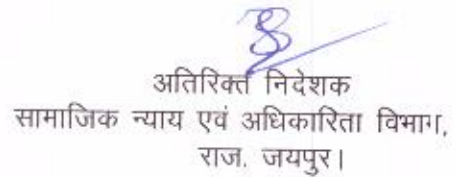 अतिरिक्त निदेशक
सामाजिक न्याय एवं अधिकारिता विभाग,
राज. जयपुर।